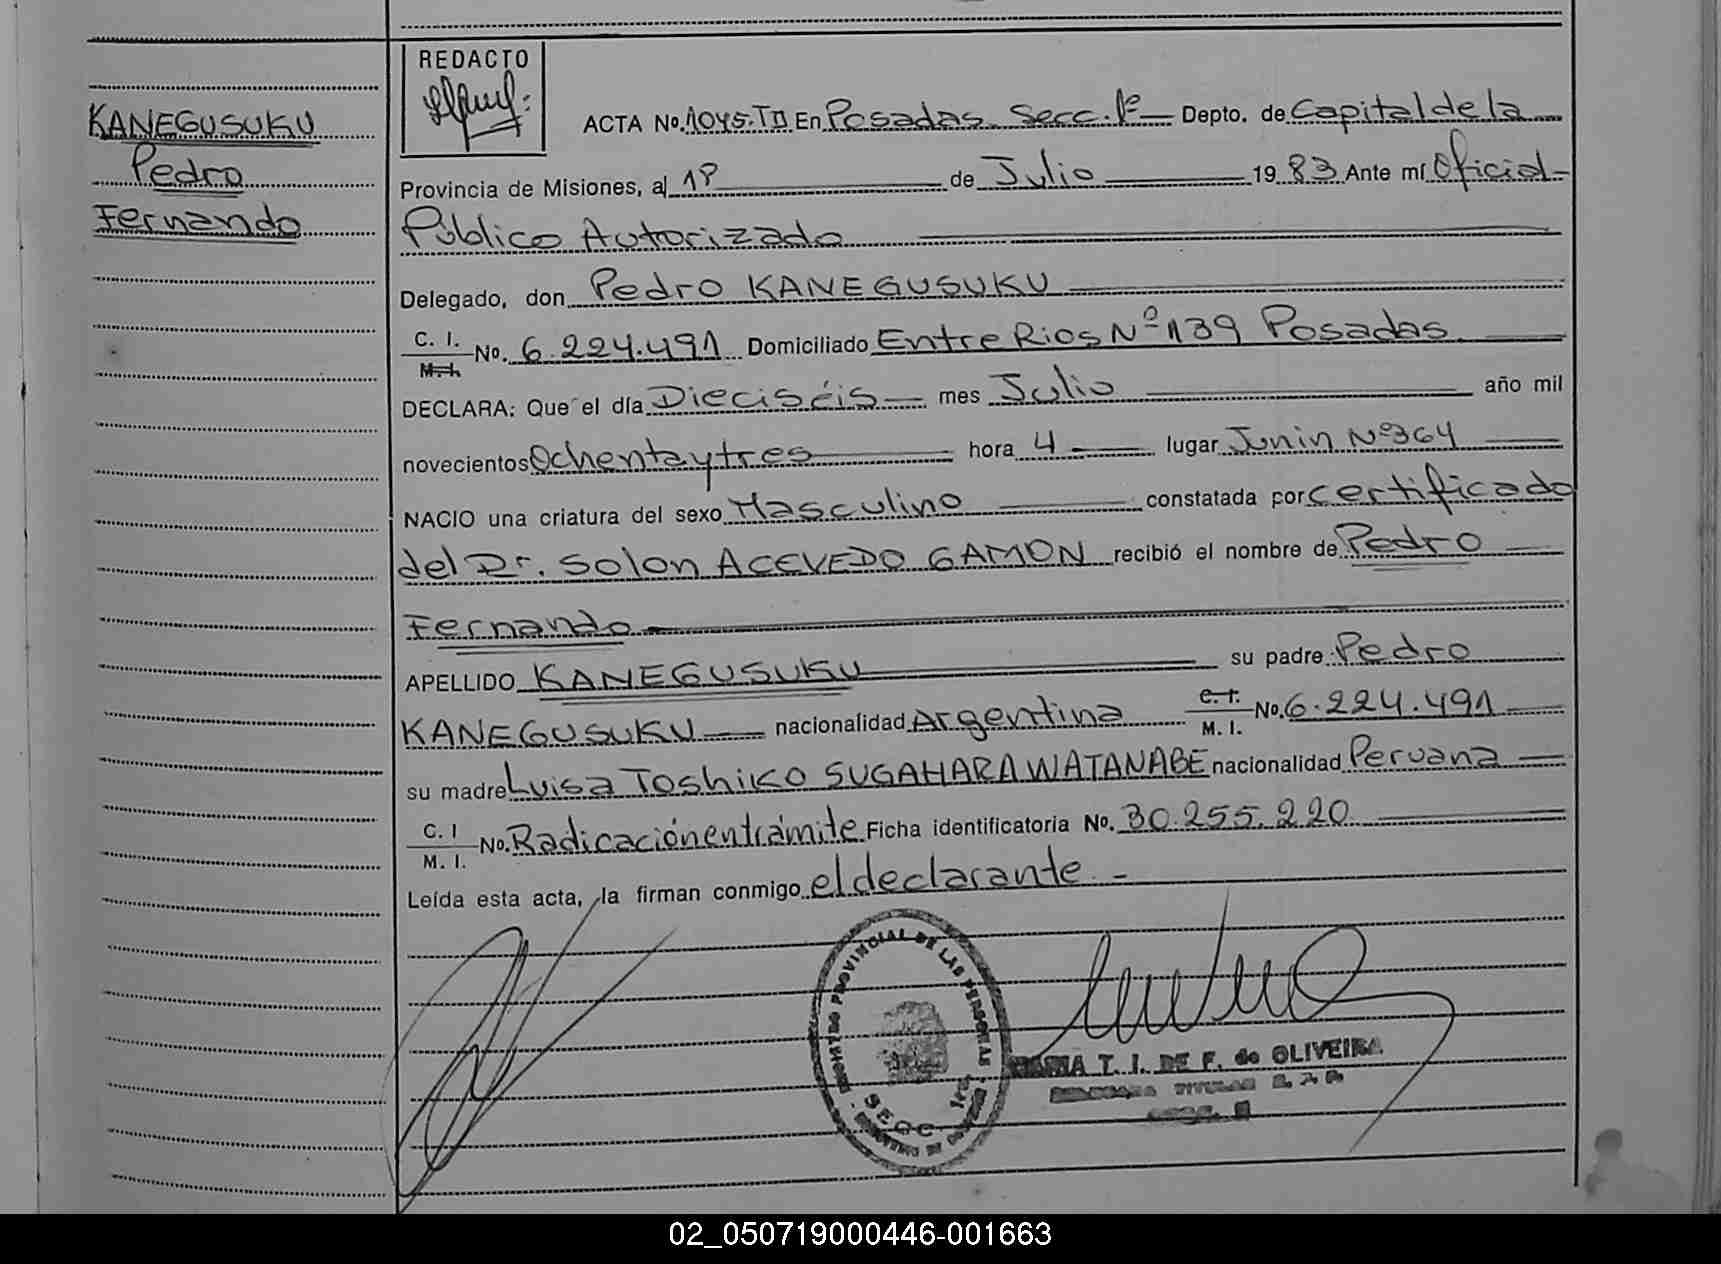 KANEGUSUKU
Pedro
Fernando
REDACTO
ACTA No. 1045.TII En Posadas Secc. 1º Depto. de Capital de la
Provincia de Misiones, al 19 de Julio 1983 Ante mí Oficial
Público Autorizado
Delegado, don Pedro KANEGUSUKU
C. I. M. I. No. 6.224.491 Domiciliado Entre Rios Nº 139 Posadas.
DECLARA: Que el día Dieciséis mes Julio año mil
novecientos Ochenta y tres hora 4 lugar Junin Nº 364
NACIO una criatura del sexo Masculino constatada por certificado
del Dr. Solon ACEVEDO GAMON recibió el nombre de Pedro
Fernando
APELLIDO KANEGUSUKU su padre Pedro
KANEGUSUKU nacionalidad Argentina C. I. M. I. No. 6.224.491
su madre Luisa Toshiko SUGAHARA WATANABE nacionalidad Peruana
C. I M. I. No. Radicación en trámite Ficha identificatoria No. 30.255.220
Leída esta acta, la firman conmigo el declarante. -
PROVINCIAL DE LAS PERSONAS
SECC. 1era.
MARIA T. I. DE F. de OLIVEIRA
02_050719000446-001663